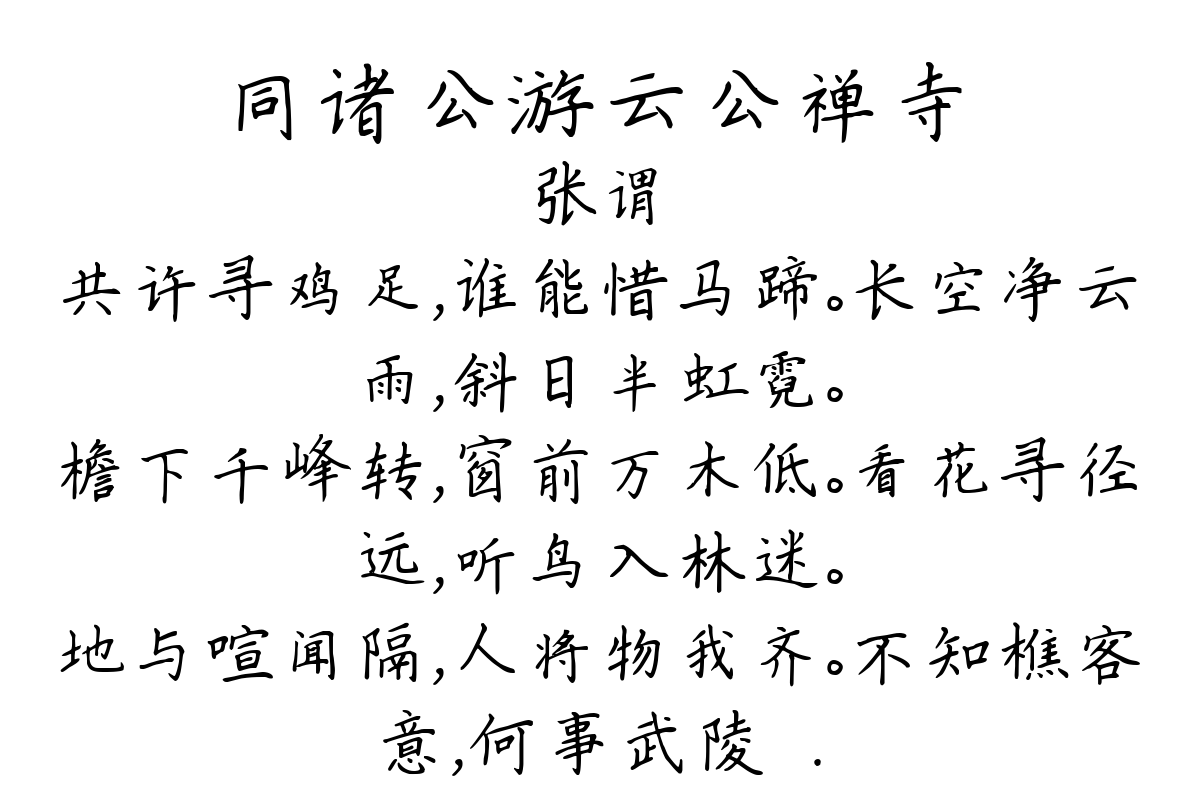 同诸公游云公禅寺
张谓
共许寻鸡足,谁能惜马蹄。长空净云
雨,斜日半虹霓。
檐下千峰转,窗前万木低。看花寻径
远,听鸟入林迷。
地与喧闻隔,人将物我齐。不知樵客
意,何事武陵 .